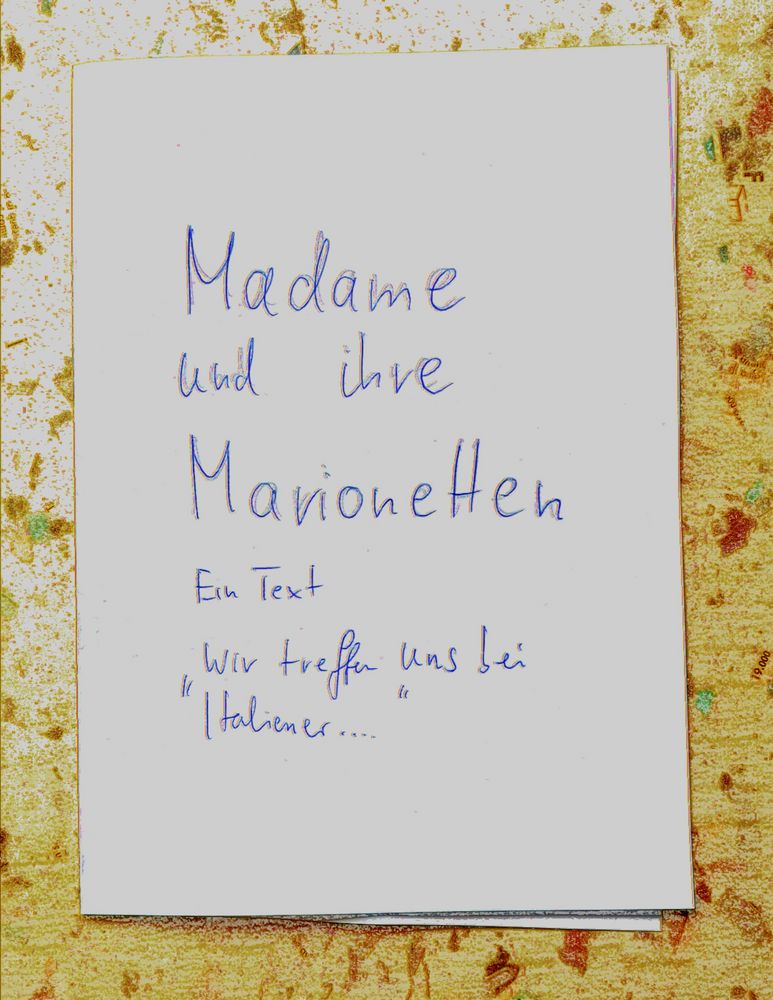 Madame
und ihre
Marionetten
Ein Text
„Wir treffen uns bei
Italiener....“
19.000